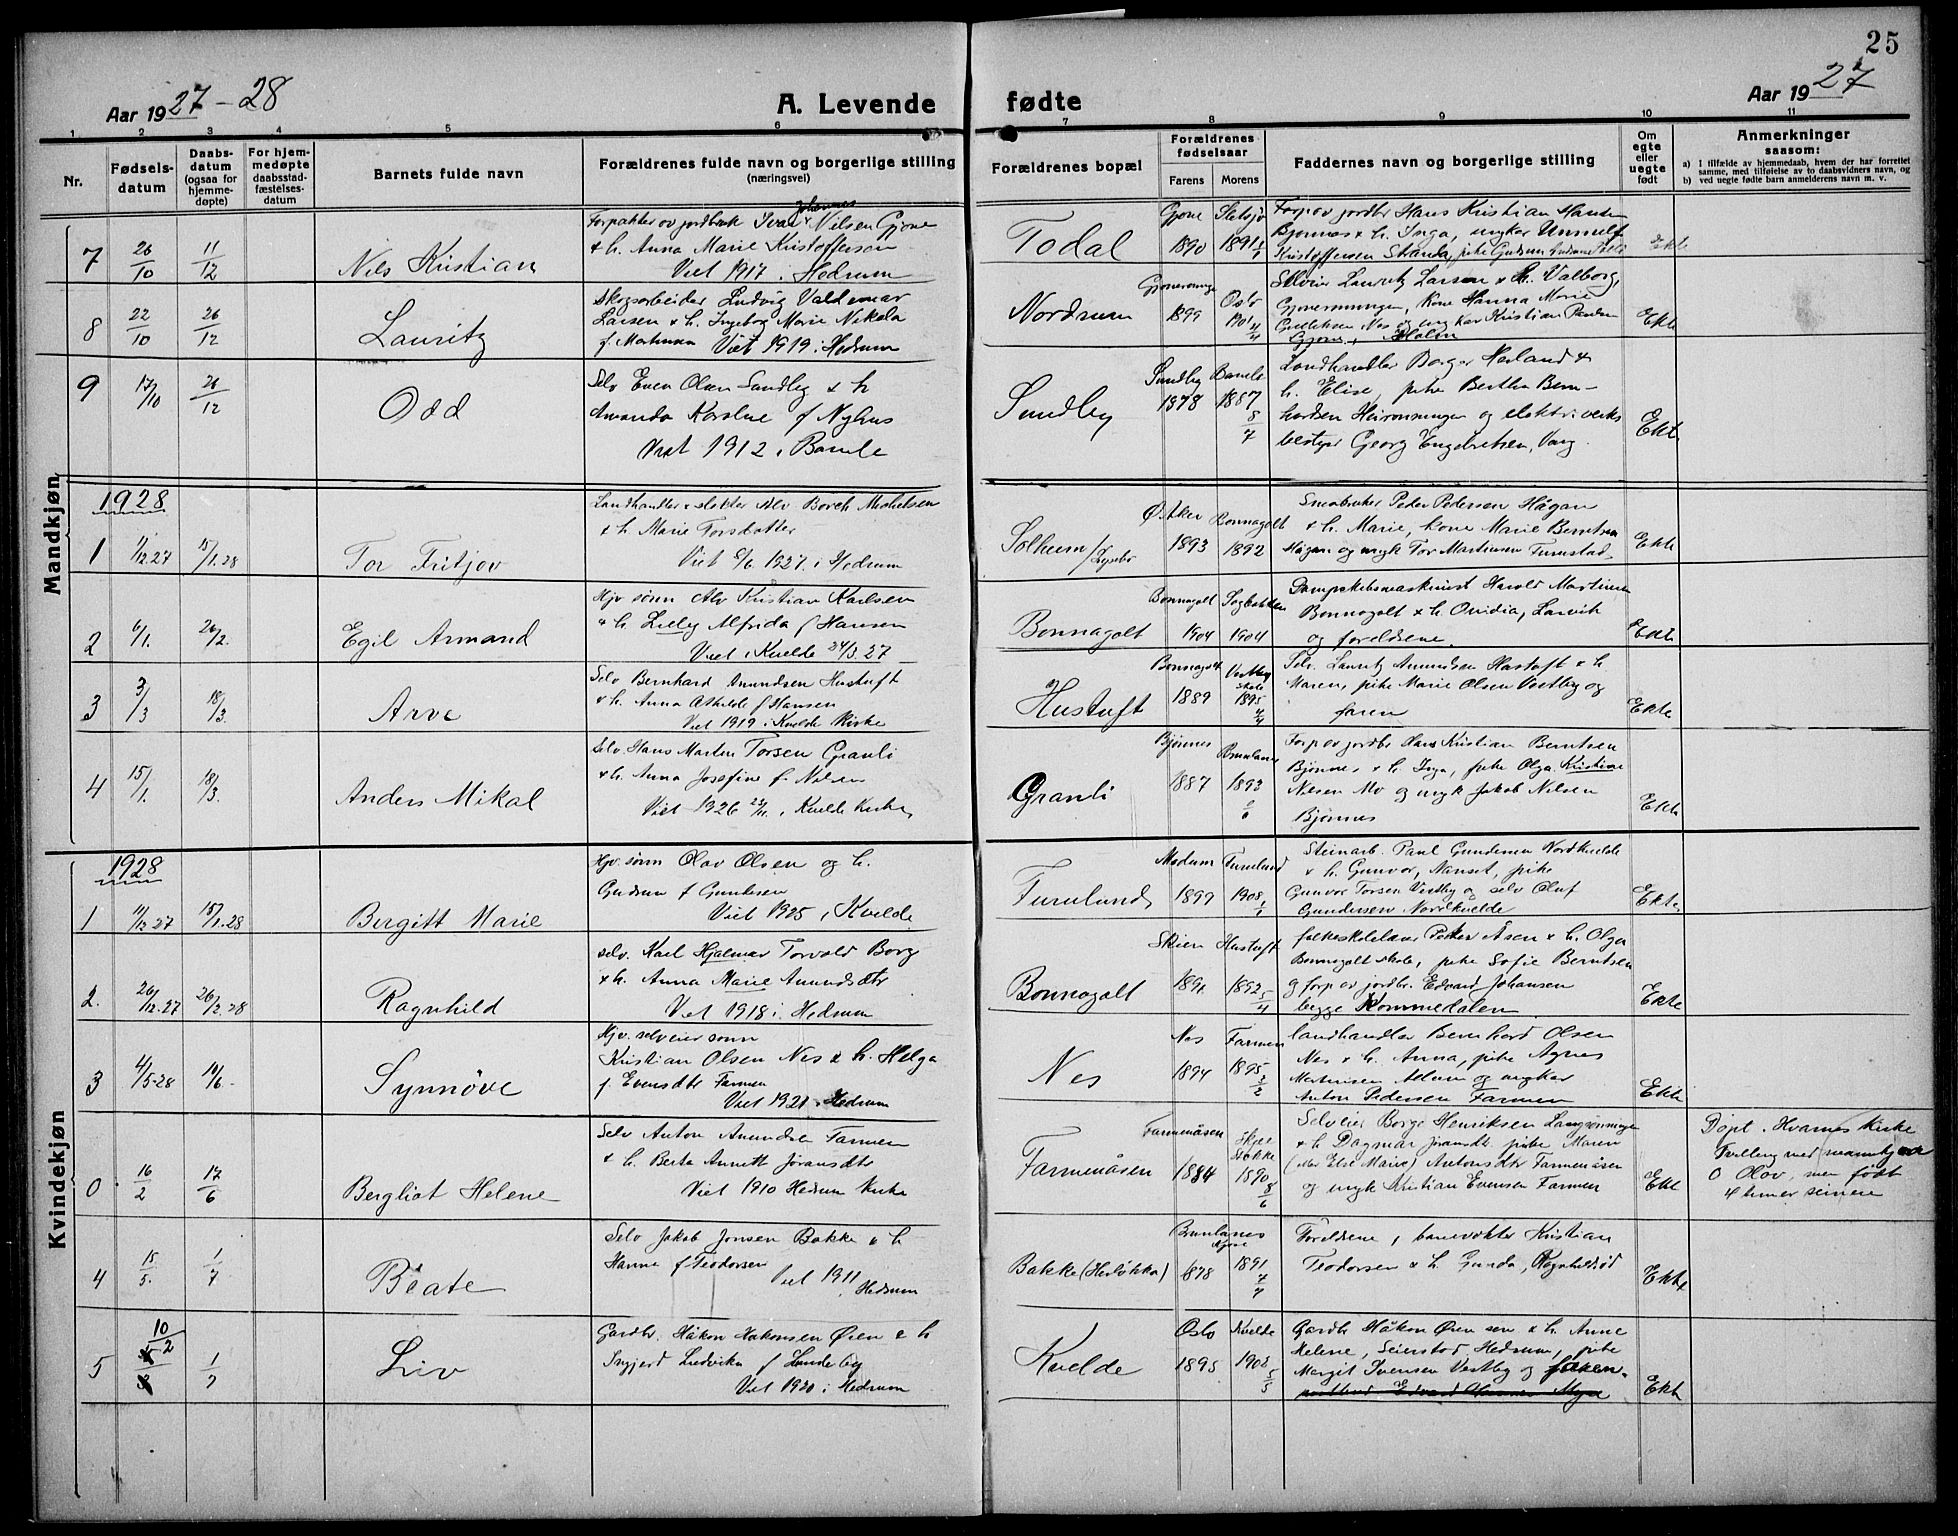 25
Aar 1927-28
A. Levende
fødte
Aar 1927
1 2 3 4 5 6 7 8 9 10 11
Nr.
Fødsels-
datum
Daabs-
datum
(ogsaa for
hjemme-
døpte)
For hjem-
medøpte
daabsstad-
fæstelses-
datum
Barnets fulde navn
Forældrenes fulde navn og borgerlige stilling
(næringsvei)
Forældrenes bopæl
Forældrenes
fødselsaar
Farens Morens
Faddernes navn og borgerlige stilling
Om
egte
eller
uegte
født
Anmerkninger
saasom:
a) I tilfælde av hjemmedaab, hvem der har forrettet
samme, med tilføielse av to daabsvidners navn, og
b) ved uegte fødte barn anmelderens navn m. v.
Mandkjøn
7 26/10 11/12 Nils Kristian
Forpakter av jordbruk Ivar Johannes Nilsen Gjone
& h. Anna Marie Kristoffersen
Viet 1917 i Hedrum
Todal
Gjone 1890
1891
Forp av jordbr Hans Kristian Hansen
Bjønnes & h. Inga, ungkar
Kristoffersen Stranda, pike Gudrun
Ekte
8 22/10 26/12 Lauritz
Skogsarbeider Ludvig Valdemar
Larsen & h. Ingeborg Marie Nikola
f. Martinsen Viet 1919 i Hedrum
Nordrum
1899
Oslo 1901
Selveier Lauritz Larsen & h. Valborg,
Gjonerønningen, Kone Hanna Marie
Gulliksen Nes og ungkar Kristian Paulsen
Gjone, Holm
Ekte
9 17/10 26/12 Odd
Selv Even Olsen Sundby & h
Amanda Karoline f Nyhus
Viet 1912 i Bamle
Sundby
Sundby 1878
Bamle 1887 8/7
Landhandler Borger Nesland &
h. Elise, pike Berthe Bern-
hardsen Heirønningen og elektr. verks
bestyr Georg Engebretsen, Vang
Ekte
1928
1 11/12.27 15/1.28 Tor Fritjov
Landhandler & slakter Alv Borch Mikkelsen
& h. Marie Torsdatter
Viet 6/6. 1927. i Hedrum
Solheim/Lysebo
1893
Bonnagolt 1892
Småbruker Peder Pedersen Hågan
& h. Marie, kone Marie Berntsen
Hågan og ungk Tor Martinsen Furustad
Ekte
2 6/1. 26/2. Egil Armand
Hjv sønn Alv Kristian Karlsen
& h. Lilly Alfrida f Hansen
Viet i Kvelde 24/3.27
Bonnagolt
Bonnagolt 1904
1904
Dampskibsmaskinist Harald Martinsen
Bonnagolt & h. Ovidia, Larvik
og foreldrene.
Ekte
3 3/3 18/3. Arve
Selv Bernhard Amundsen Hustuft
& h. Anna Athilde f Hansen
Viet 1919 i Kvelde Kirke
Hustuft
Bonnagolt 1889
Vestby skole 1895 4/4
Selv. Lauritz Amundsen Hustuft & h.
Maren, pike Marie Olsen Vestby og
faren
Ekte
4 15/1. 18/3. Anders Mikal
Selv. Hans Marten Torsen Granli
& h. Anna Josefine f. Nilsen
Viet 1926 i Kvelde Kirke
Granli
Bjønnes 1887
Brunlanes 1893
Forp av jordbr Hans Kristian Berntsen
Bjønnes & h. Inga, pike Olga Kristine
Nilsen Mo og ungk Jakob Nilsen
Bjønnes
Ekte
Kvindekjøn
1928
1 11/12 27 15/1.28 Bergitt Marie
Hjv. sønn Olav Olsen og h.
Gudrun f Gundersen
Viet 1925 i Kvelde
Furulund
Medum 1899
Furulund 1908
Steinarb. Paul Gundersen Nordkvelde
& h. Gunvor, Nanset, pike
Gunvor Torsen Vestby og selv Oluf
Gundersen Nordkvelde
Ekte
2. 26/12.27 26/2.28 Ragnhild
selv. Karl Hjalmar Torvald Borg
& h. Anna Marie Amundsdtr
Viet 1918 i Hedrum
Bonnagolt
Skien 1891
Hustuft 1892 5/4
folkeskolelærer Petter Åsen & h. Olga
Bonnagolt skole, pike Sofie Berntsen
g forp av jordbr. Edvard Johansen
begge Kommedalen
Ekte
3 4/5-28 10/6. Synnöve
Hjv. selveier sønn
Kristian Olsen Nes & h. Helga
f. Evensdtr Farmen
Viet 1921 i Hedrum
Nes
Nes 1894
Farmen 1895 2/2
landhandler Bernhard Olsen
Nes & h. Anna, pike Agnes
Martinsen Adum og ungkar
Anton Pedersen Farmen
Ekte
0 16/2 17/6 Bergliot Helene
Selv Anton Amundsen Farmen
& h. Berta Annett Jøransdtr
Viet 1910 Hedrum kirke
Farmenåsen
Farmenåsen 1884
1890 8/6
Selveier Borge Henriksen Langrønningen
& h. Dagmar Jøransdtr pike Maren
(Mor Else Marie) Antonsdtr Farmenåsen
og ungk Kristian Evensen Farmen
Ekte
Döpt i Hvarnes Kirke
Tvilling med mannkjøn
0 Olav, men født
4 timer seinere
4 15/5. 1/7 Beate
Selv Jakob Jonsen Bakke & h
Hanna f Teodorsen
Viet 1911 i Hedrum
Bakke (Herløkka)
Brunlanes 1878
1891 7/7
Foreldrene, banevokter Kristian
Teodorsen & h Gunda, Ragnhildrød
Ekte
5 10/2 1/7 Liv
Gardbr. Håkon Hakonsen Øien & h
Ingjerd Ludvika f Lundeby
Viet 1920 i Hedrum
Kvelde
Oslo 1895
Kvelde 1902 5/5
Gardbr Håkon Øien sen & h. Anne
Helene, Seierstad, Hedrum, pike
Margit Ivensen Vestby og faren.
Ekte